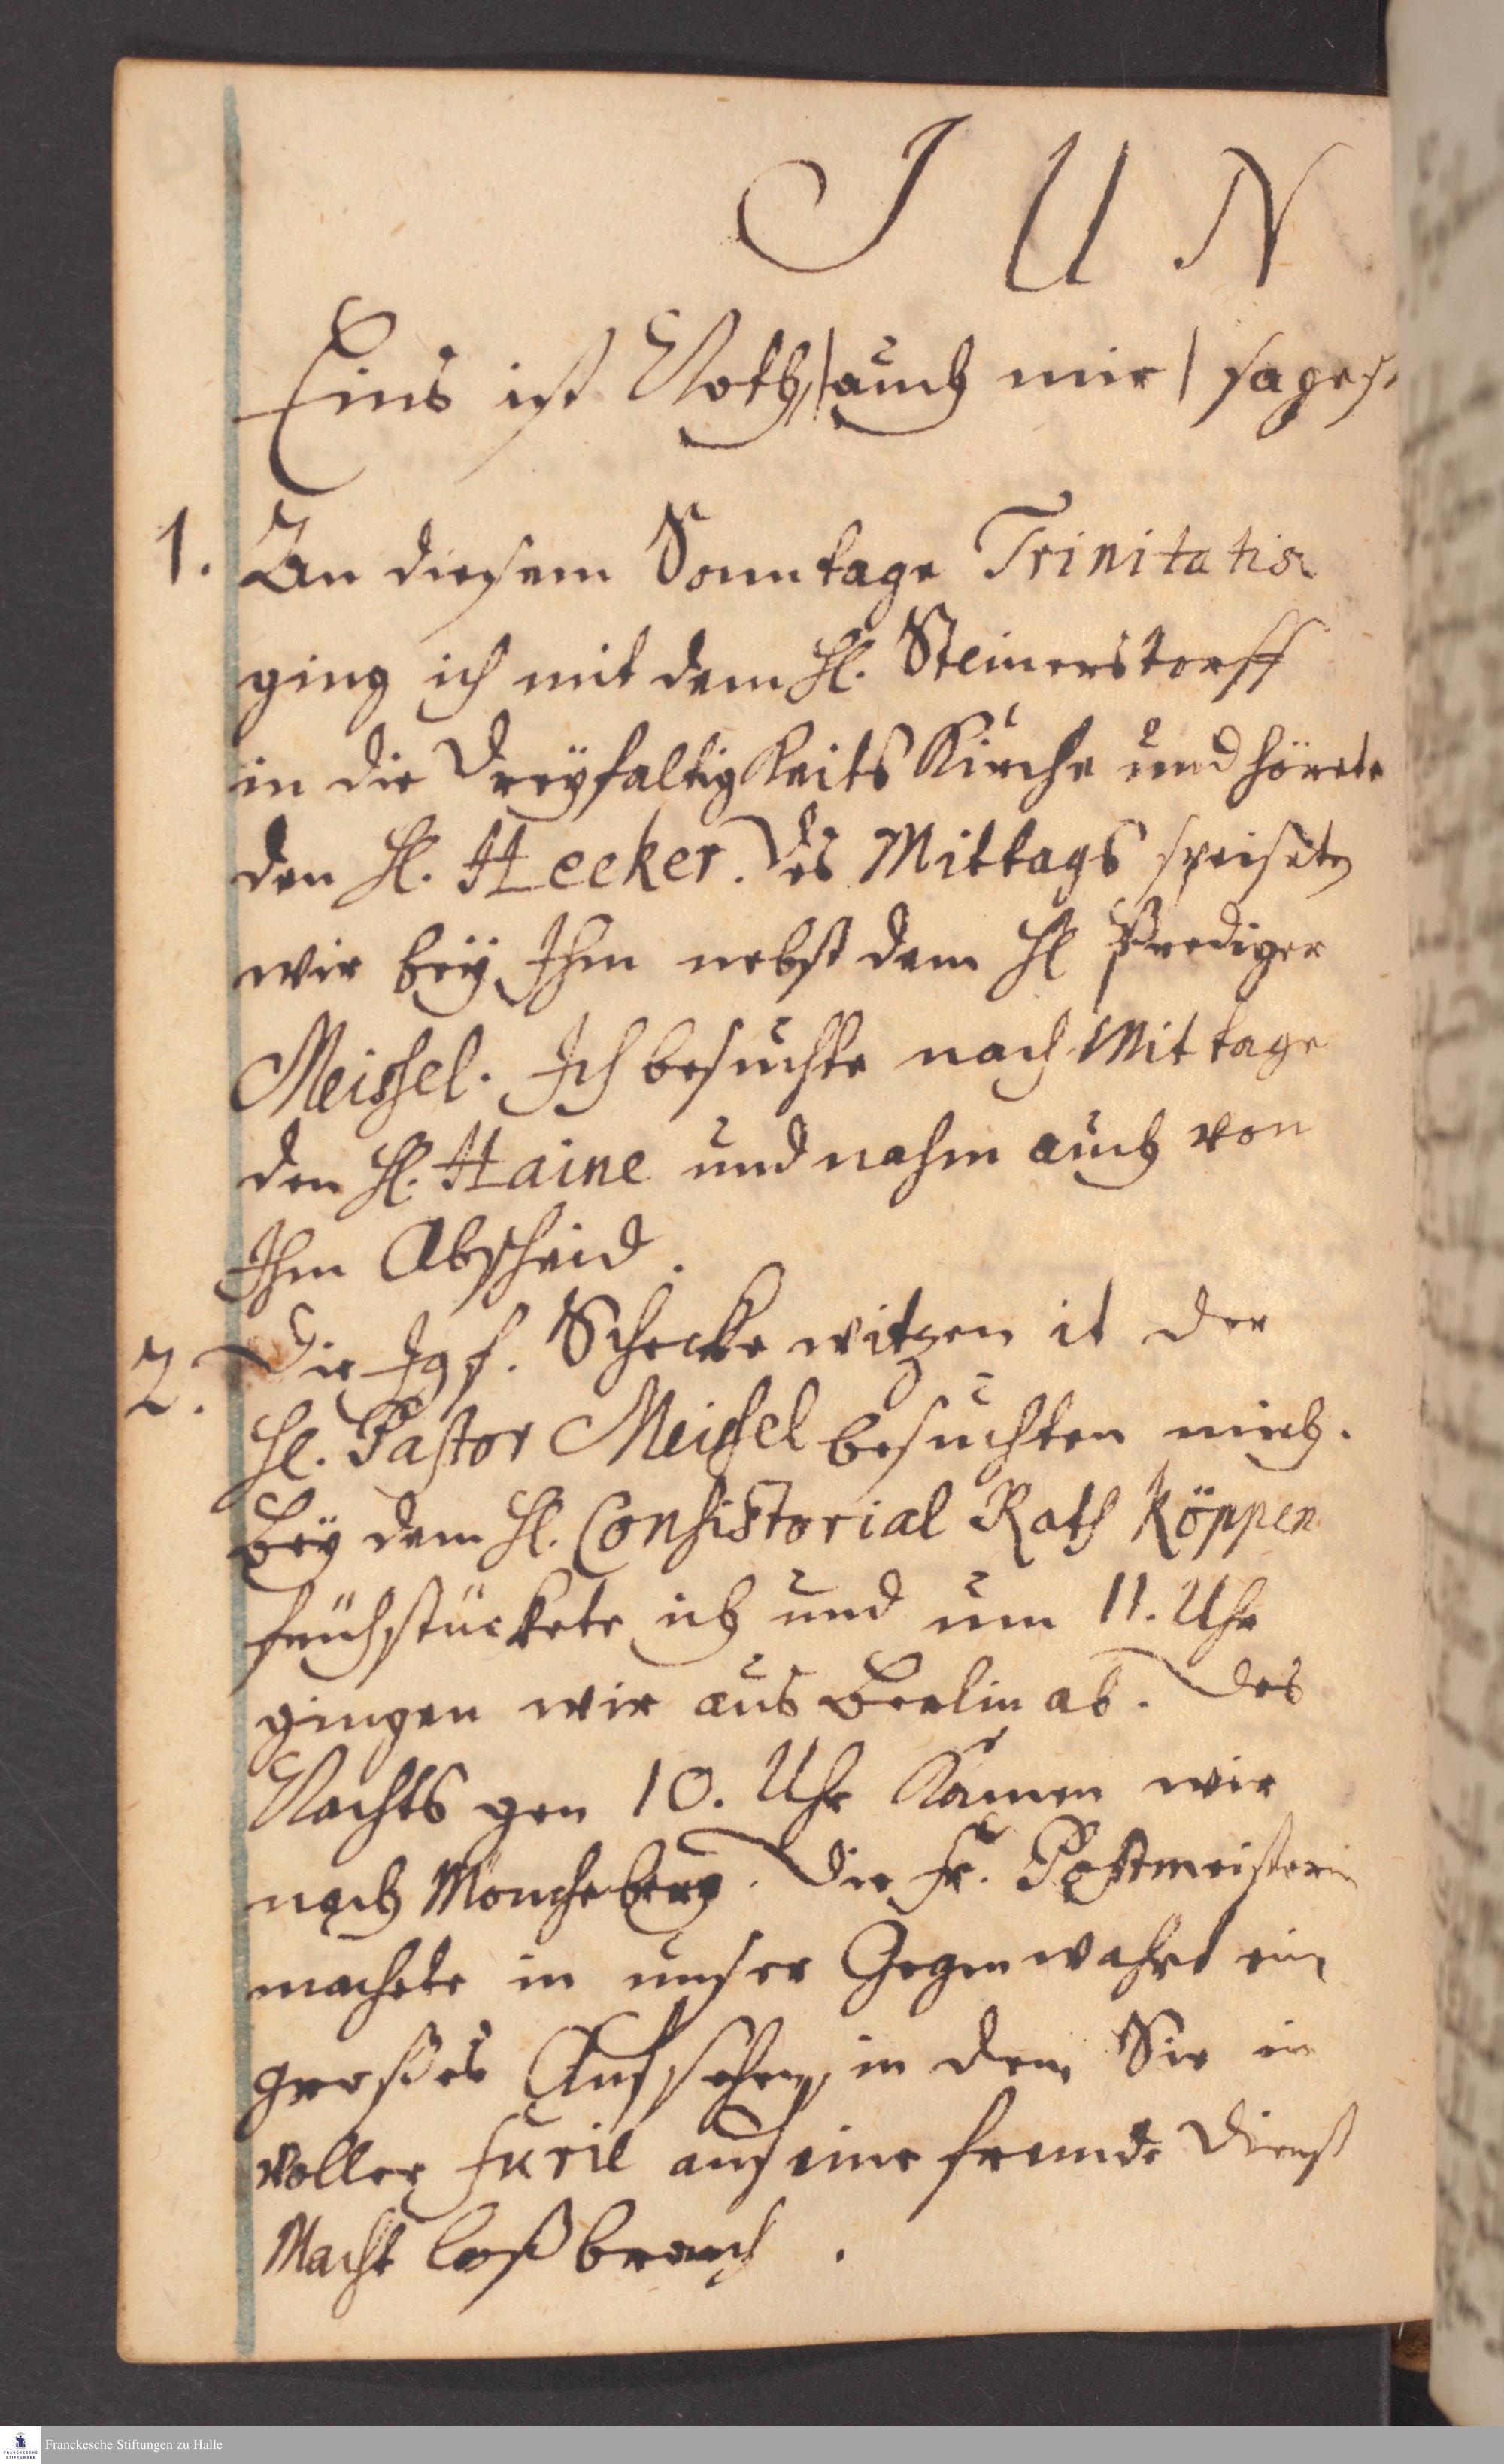 J U N
Eins ist Noth, |auch mir| sages
1. An diesem Sonntage Trinitatis
ging ich mit dem H. Steinerstorff
in die Dreyfaltigkeits Kirche und hörete
den H. Hecker. Des Mittags speiseten
wir bey Ihm nebst dem H Prediger
Meissel. Ich besuchte nach Mittage
den H. Haine und nahm auch von
Ihm Abscheid.
2. Die Jgf. Scheckewitzen it der
H. Pastor Meissel besuchten mich.
Bey dem H. Consistorial Rath Köppen
frühstückete ich und um 11. Uhr
gingen wir aus Berlin ab. Des
Nachts gen 10. Uhr kamen wir
nach Moncheberg. Die Fr. Postmeisterin
machete in unser Gegenwahrt ein
großes Aufsehen, in dem Sie in
voller Furie auf eine fremde Dienst
Macht loßbrach.
Franckesche Stiftungen zu Halle